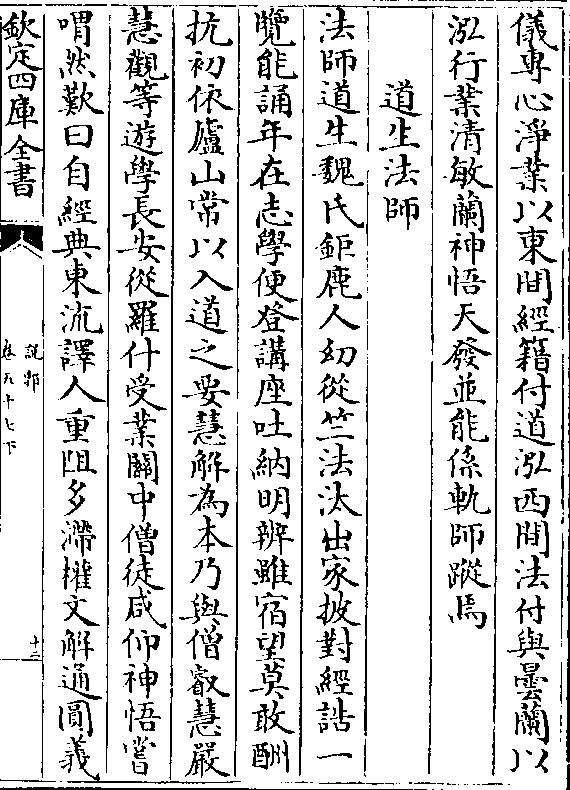 儀專心淨業以東間經籍付道泓西間法付與曇蘭以
泓行業清敏蘭神悟天發並能係軌師蹤焉
道生法師
法師道生魏氏鉅鹿人幼從竺法汰出家披對經誥一
覽能誦年在志學便登講座吐納明辨雖宿望莫敢酬
抗初依廬山常以入道之要慧解為本乃與僧叡慧嚴
慧觀等遊學長安從羅什受業關中僧徒咸仰神悟嘗
喟然歎曰自經典東流譯人重阻多滯權文解通圓義
欽定四庫全書
說郛
卷五十七下
十二